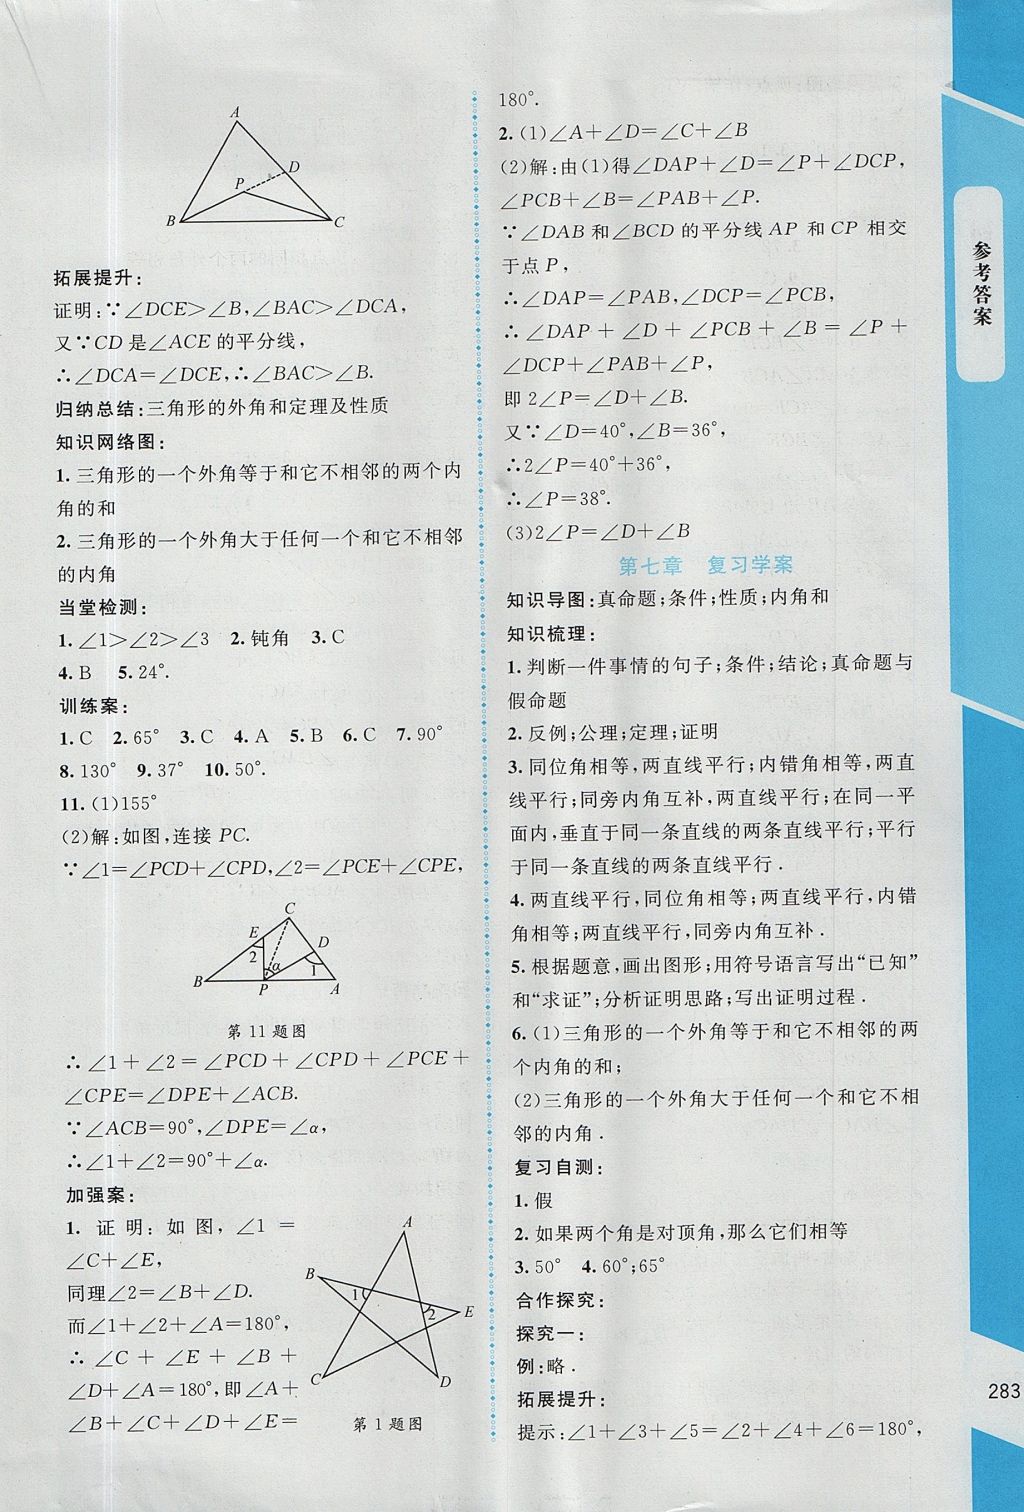 A
D
P
B
C
拓展提升:
证明:∵∠DCE>∠B,∠BAC>∠DCA,
又∵CD是∠ACE的平分线,
∴∠DCA=∠DCE,∴∠BAC>∠B.
归纳总结:三角形的外角和定理及性质
知识网络图:
1.三角形的一个外角等于和它不相邻的两个内
角的和
2.三角形的一个外角大于任何一个和它不相邻
的内角
当堂检测:
1.∠1>∠2>∠3 2.钝角 3.C
4.B 5.24°.
训练案:
1.C 2.65° 3.C 4.A 5.B 6.C 7.90°
8.130° 9.37° 10.50°.
11.(1)155°
(2)解:如图,连接PC.
∵∠1=∠PCD+∠CPD,∠2=∠PCE+∠CPE,
C
E
D
2
α
1
B
P
A
第11题图
∴∠1+∠2=∠PCD+∠CPD+∠PCE+
∠CPE=∠DPE+∠ACB.
∵∠ACB=90°,∠DPE=∠α,
∴∠1+∠2=90°+∠α.
加强案:
1. 证明:如图,∠1=
∠C+∠E,
同理∠2=∠B+∠D.
而∠1+∠2+∠A=180°,
∴∠C+∠E+∠B+
∠D+∠A=180°,即∠A+
∠B+∠C+∠D+∠E=
A
B
1
2
E
C
D
第1题图
180°.
2.(1)∠A+∠D=∠C+∠B
(2)解:由(1)得∠DAP+∠D=∠P+∠DCP,
∠PCB+∠B=∠PAB+∠P.
∵∠DAB和∠BCD的平分线AP和CP相交
于点P,
∴∠DAP=∠PAB,∠DCP=∠PCB,
∴∠DAP+∠D+∠PCB+∠B=∠P+
∠DCP+∠PAB+∠P,
即2∠P=∠D+∠B.
又∵∠D=40°,∠B=36°,
∴2∠P=40°+36°,
∴∠P=38°.
(3)2∠P=∠D+∠B
第七章 复习学案
知识导图:真命题;条件;性质;内角和
知识梳理:
1.判断一件事情的句子;条件;结论;真命题与
假命题
2.反例;公理;定理;证明
3.同位角相等,两直线平行;内错角相等,两直
线平行;同旁内角互补,两直线平行;在同一平
面内,垂直于同一条直线的两条直线平行;平行
于同一条直线的两条直线平行.
4.两直线平行,同位角相等;两直线平行,内错
角相等;两直线平行,同旁内角互补.
5.根据题意,画出图形;用符号语言写出“已知”
和“求证”;分析证明思路;写出证明过程.
6.(1)三角形的一个外角等于和它不相邻的两
个内角的和;
(2)三角形的一个外角大于任何一个和它不相
邻的内角.
复习自测:
1.假
2.如果两个角是对顶角,那么它们相等
3.50° 4.60°;65°
合作探究:
探究一:
例:略.
拓展提升:
提示:∠1+∠3+∠5+∠2+∠4+∠6=180°,
参考答案
283